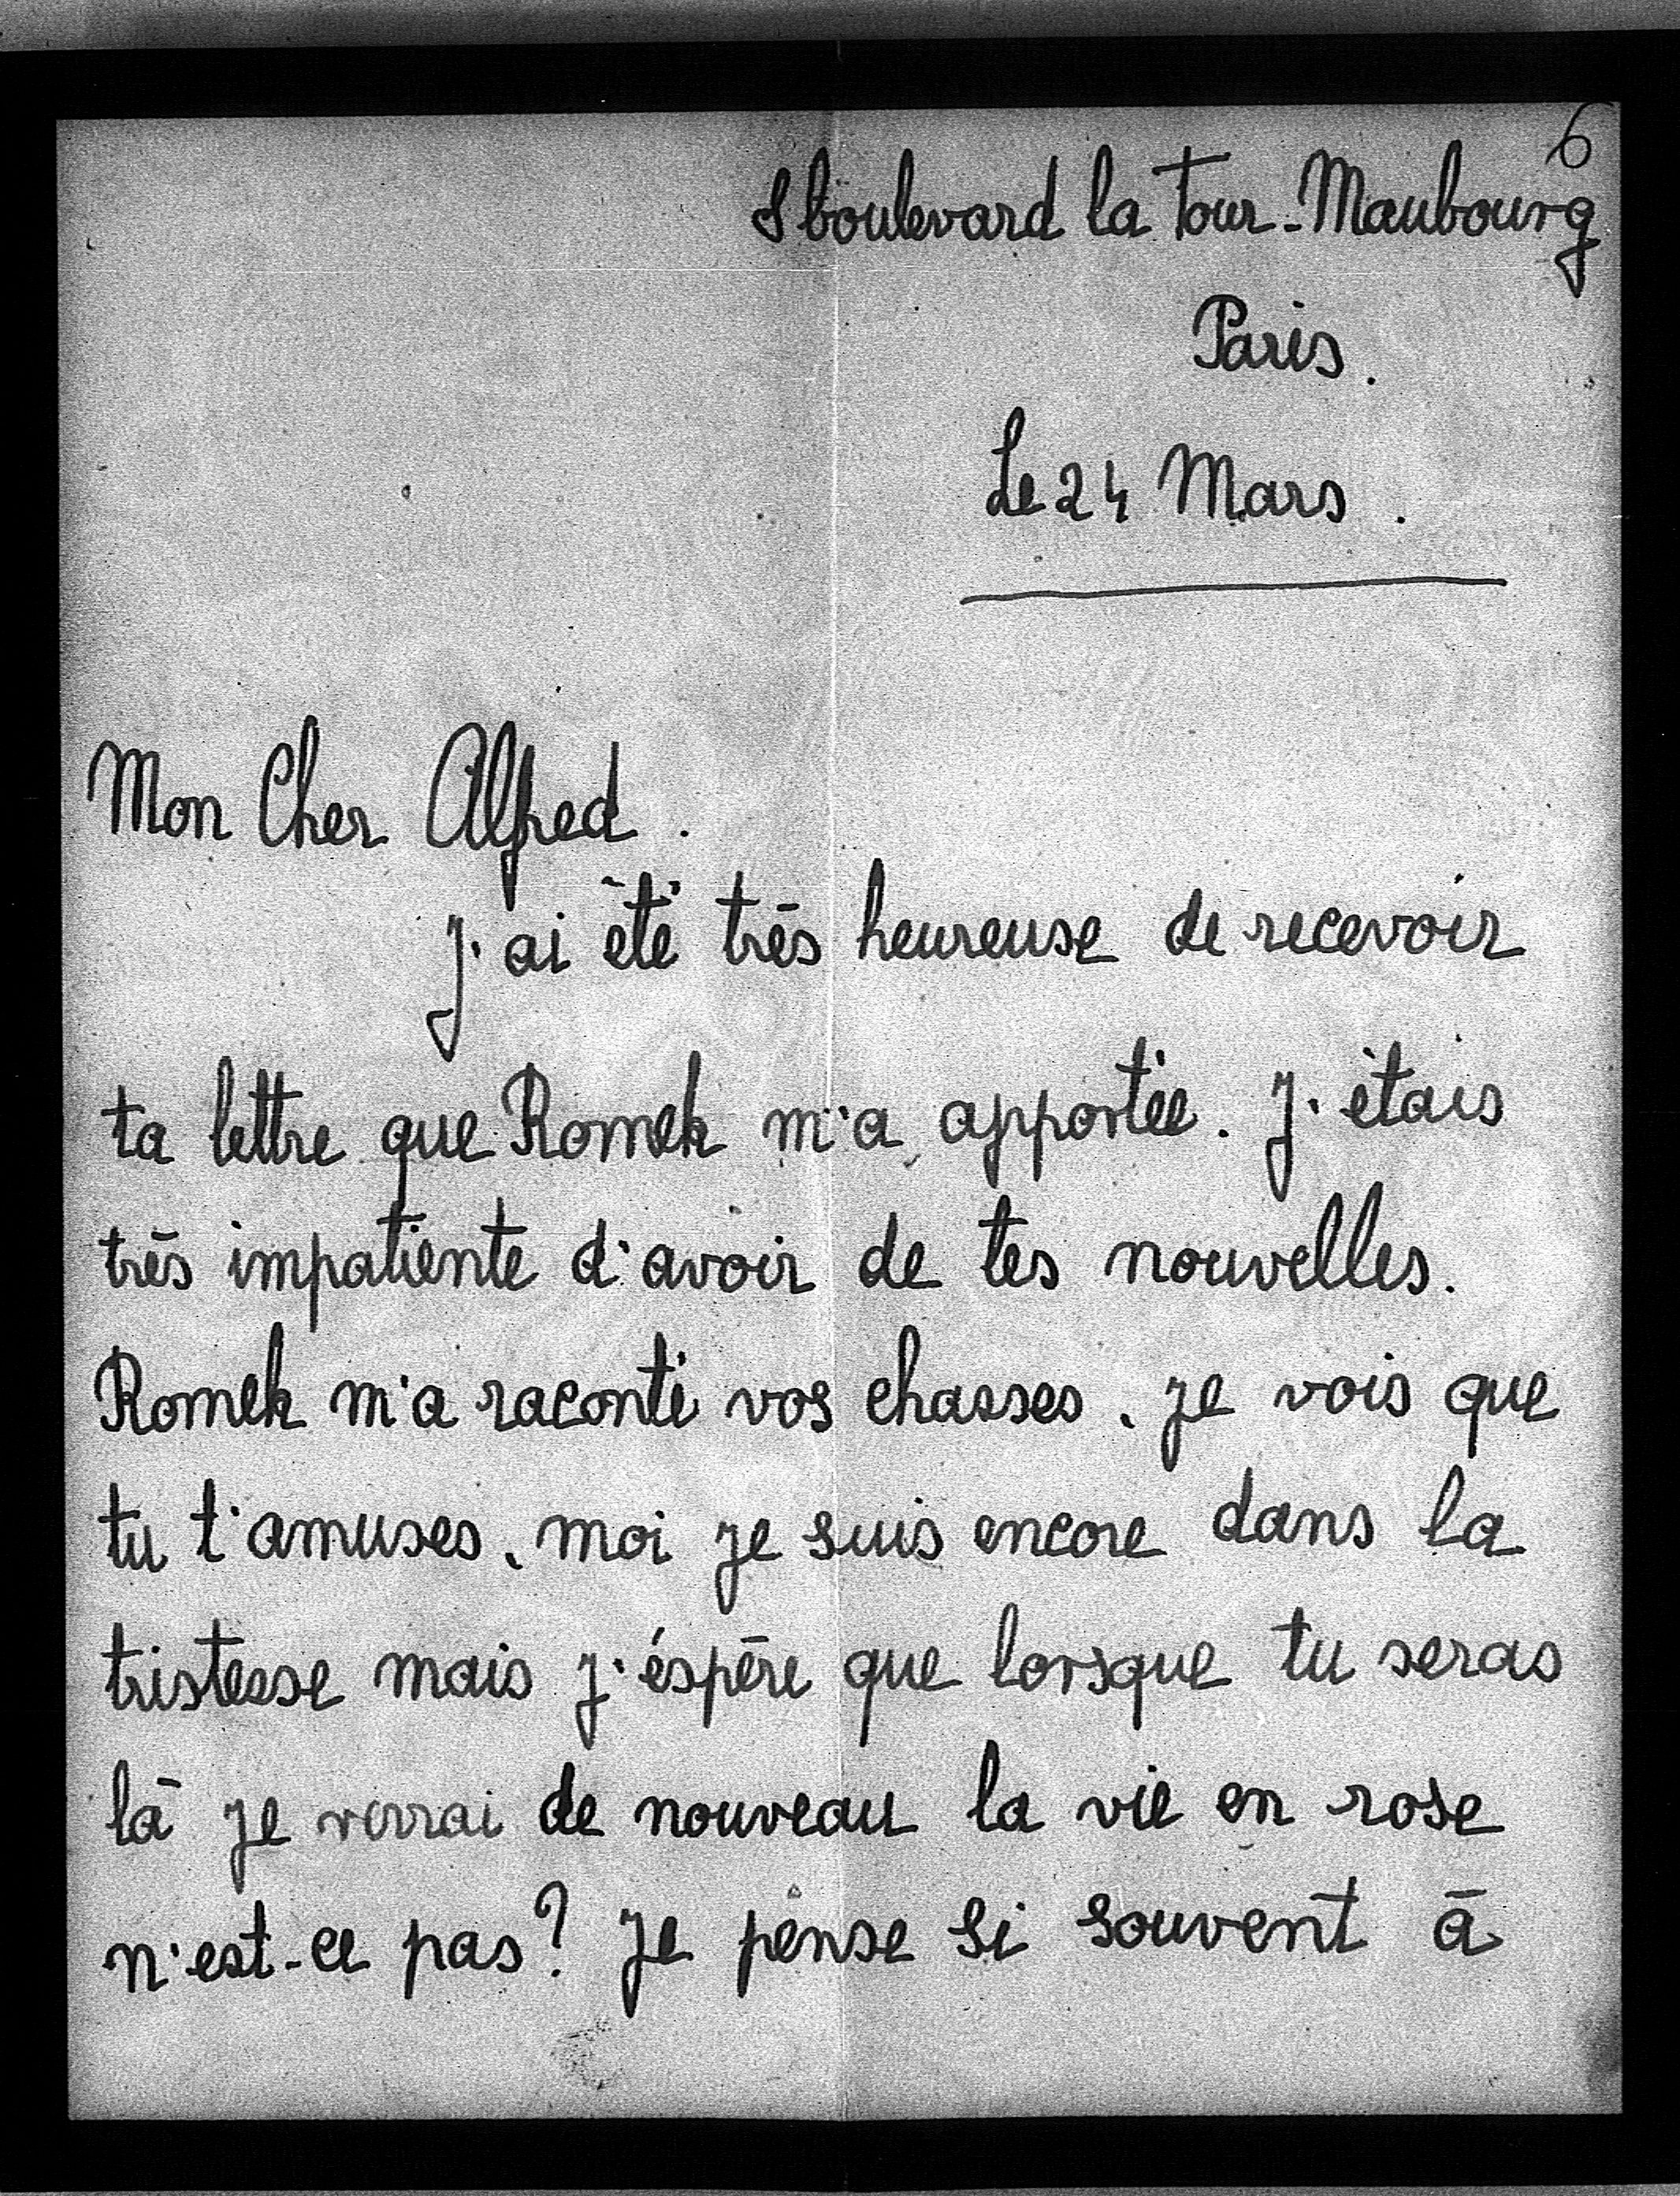 6
8 boulevard la Tour-Maubourg
Paris.
Le 24 Mars.
Mon Cher Alfred.
J'ai été très heureuse de recevoir
ta lettre que Romek m'a apportée. J'étais
très impatiente d'avoir de tes nouvelles.
Romek m'a raconté vos chasses. je vois que
tu t'amuses. moi je suis encore dans la
tristesse mais j'éspère que lorsque tu seras
là je verrai de nouveau la vie en rose
n'est-ce pas? Je pense si souvent à